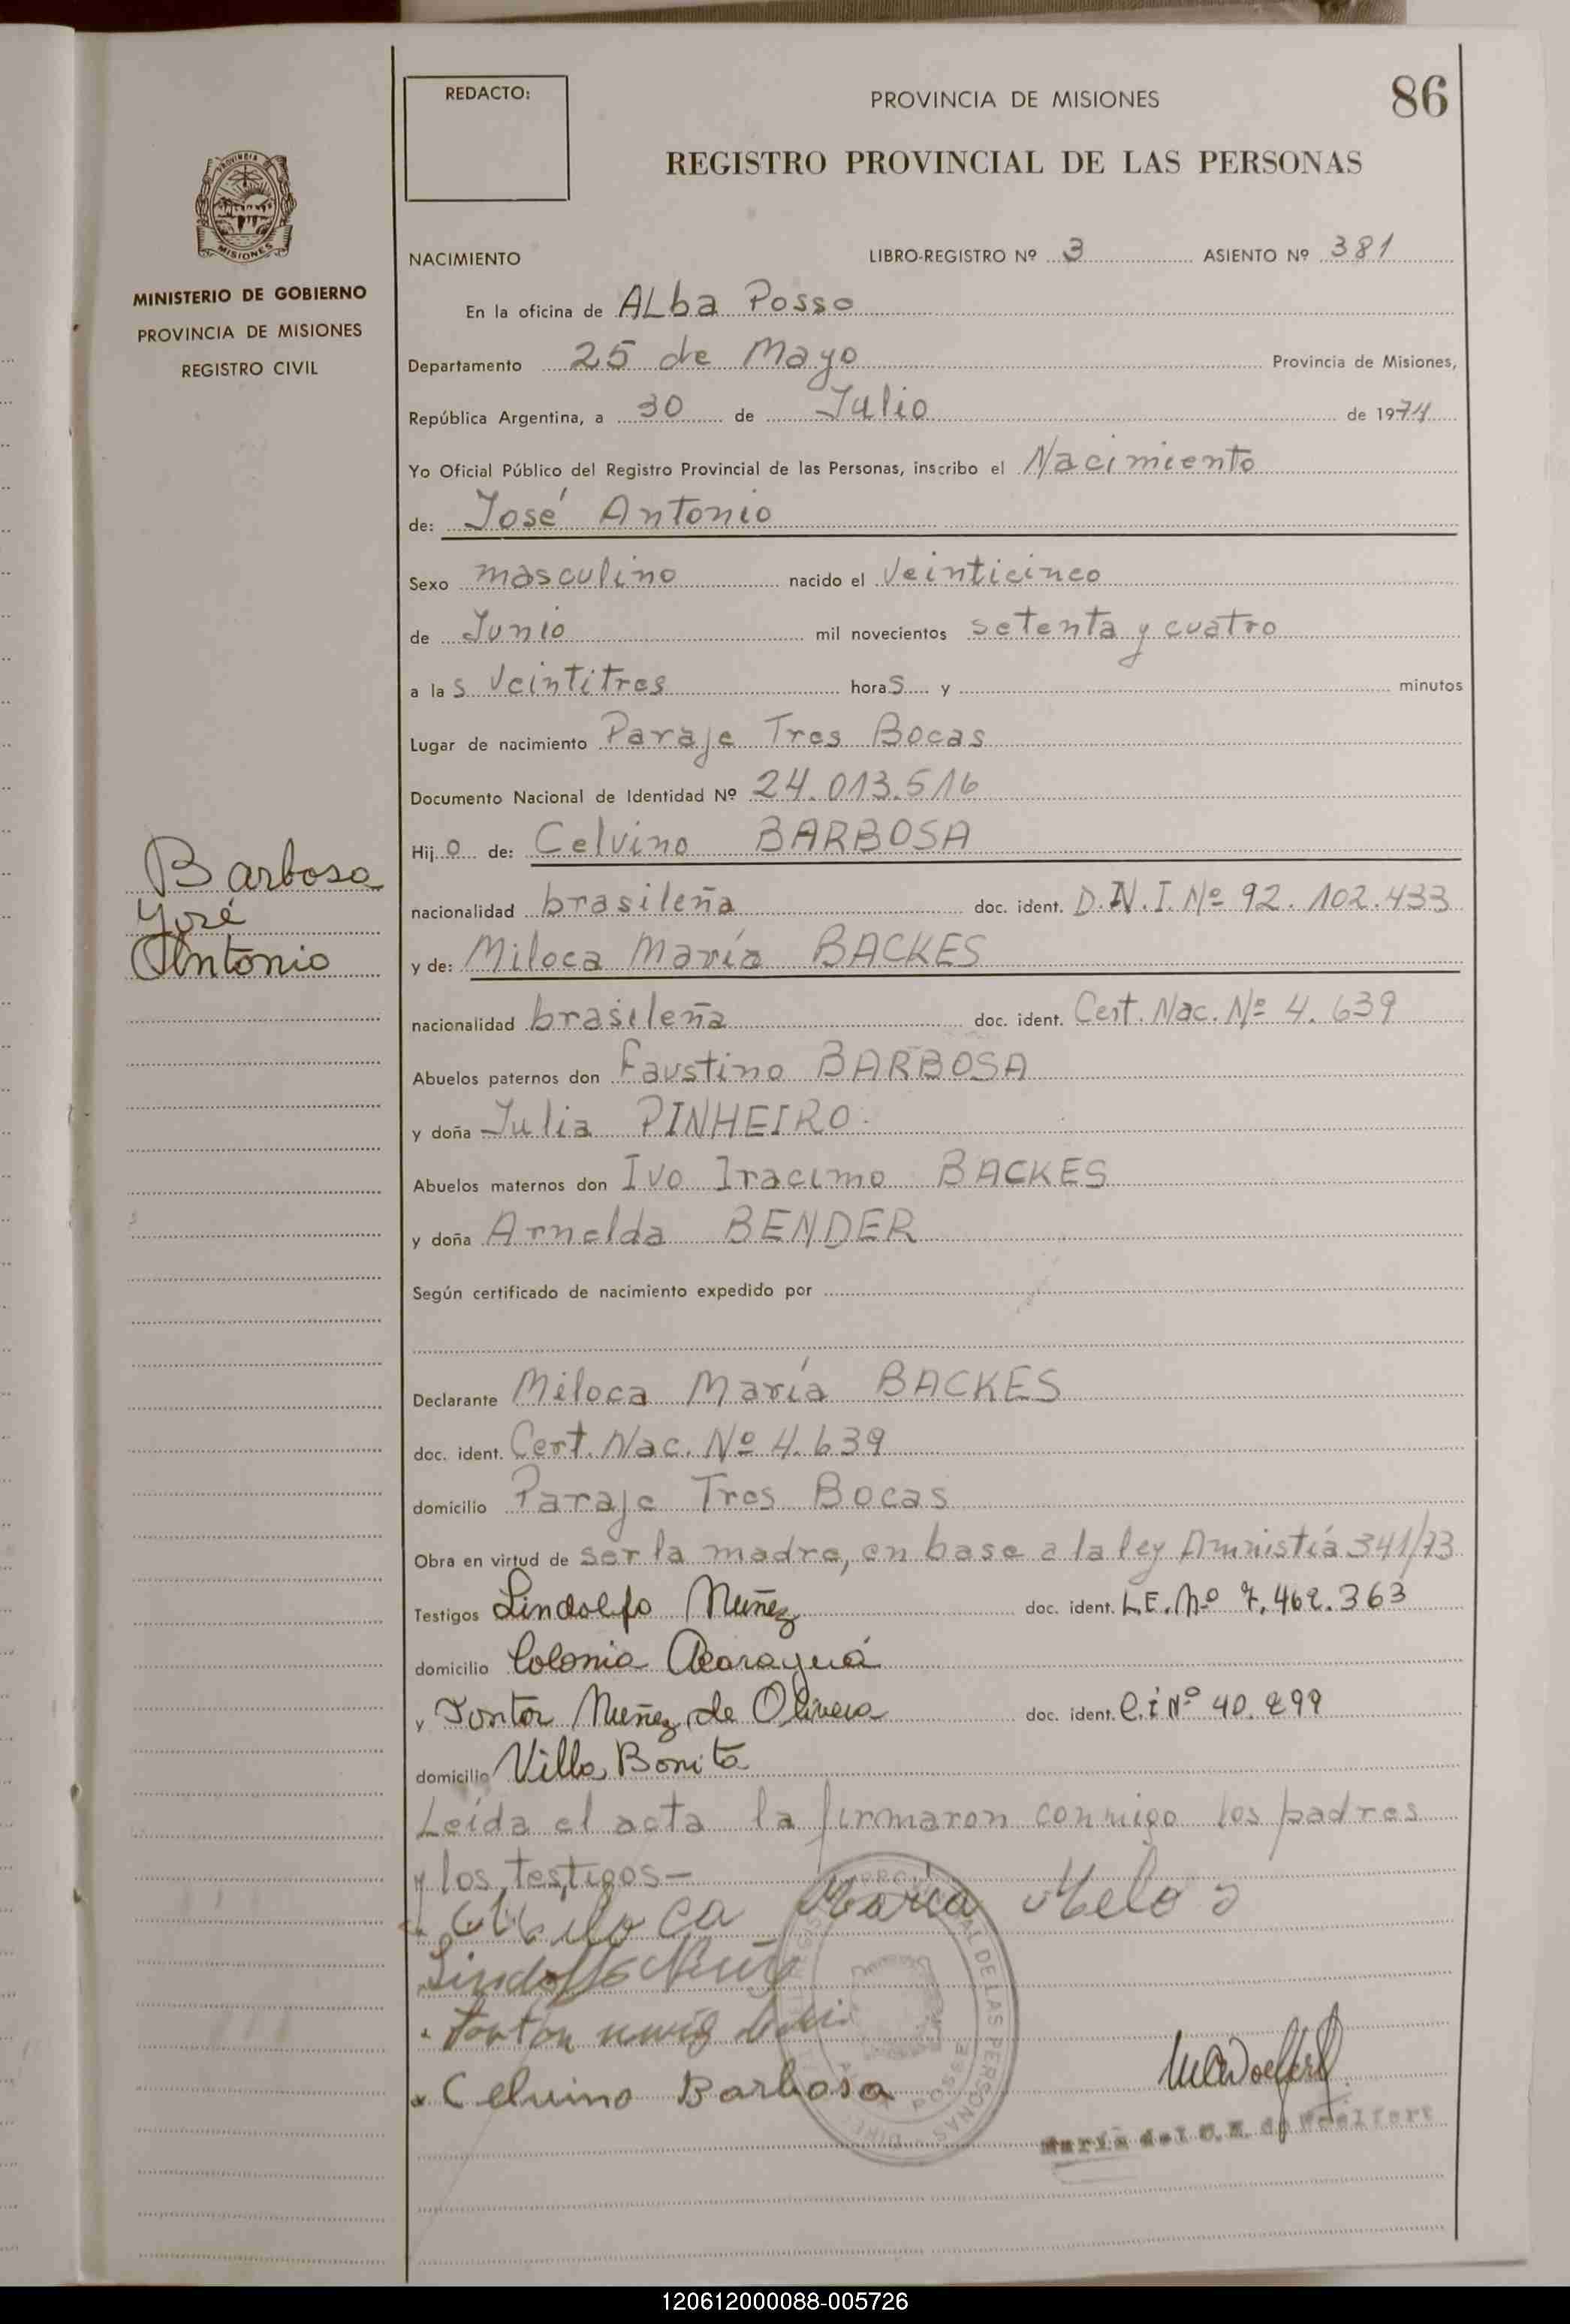 REDACTO:
PROVINCIA DE MISIONES
86
REGISTRO PROVINCIAL DE LAS PERSONAS
PROVINCIA DE
MISIONES
MINISTERIO DE GOBIERNO
PROVINCIA DE MISIONES
REGISTRO CIVIL
NACIMIENTO LIBRO-REGISTRO Nº 3 ASIENTO Nº 381
En la oficina de ALba Posse
Departamento 25 de Mayo Provincia de Misiones,
República Argentina, a 30 de Julio de 1974
Yo Oficial Público del Registro Provincial de las Personas, inscribo el Nacimiento
de: José Antonio
Sexo masculino nacido el veinticinco
de Junio mil novecientos setenta y cuatro
a las veintitres horas y minutos
Lugar de nacimiento Paraje Tres Bocas
Documento Nacional de Identidad Nº 24.013.516
Hijo de: Celvino BARBOSA
nacionalidad brasileña doc. ident. D.N.I. Nº 92.102.433
y de: Miloca María BACKES
nacionalidad brasileña doc. ident. Cert. Nac. Nº 4.639
Abuelos paternos don Faustino BARBOSA
y doña Julia PINHEIRO.
Abuelos maternos don Ivo Iracimo BACKES
y doña Arnelda BENDER
Según certificado de nacimiento expedido por
Declarante Miloca María BACKES
doc. ident. Cert. Nac. Nº 4.639
domicilio Paraje Tres Bocas
Obra en virtud de ser la madre, en base a la ley Amnistía 341/73
Testigos Lindolfo Nuñez doc. ident. L.E. Nº 7.462.363
domicilio Colonia Acaraguá
y Tontor Nuñez de Olivera doc. ident. C.i Nº 40.299
domicilio Villa Bonita
Leída el acta la firmaron conmigo los padres
y los testigos—
Miloca Maria
Lindolfo
Celvino Barbosa
DE LAS PERSONAS
POSSE
María del C. M. de Woelfert
Barbosa
José
Antonio
120612000088-005726